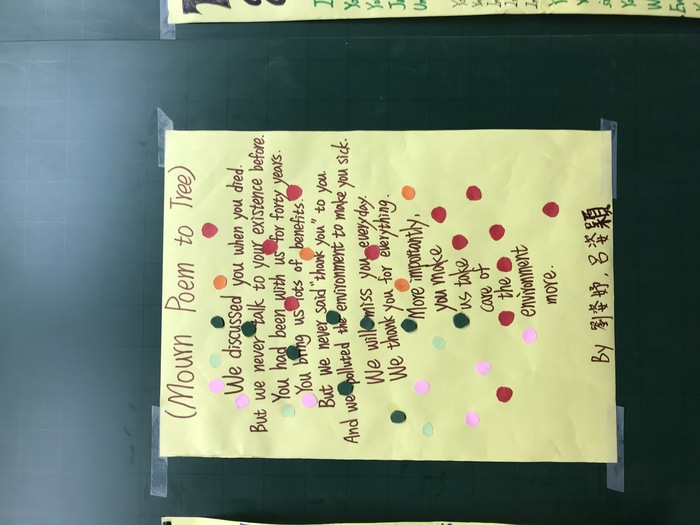 (Mourn Poem to Tree)
We discussed you when you died.
But we never talk to your existence before.
You had been with us for forty years.
You bring us lots of benefits.
But we never said "thank you" to you
And we polluted the environment to make you sick.
We will miss you everyday.
We thank you for everything.
More importantly,
you make
us take
care of
the
environment
more.
By 劉姿妤, 呂姿穎